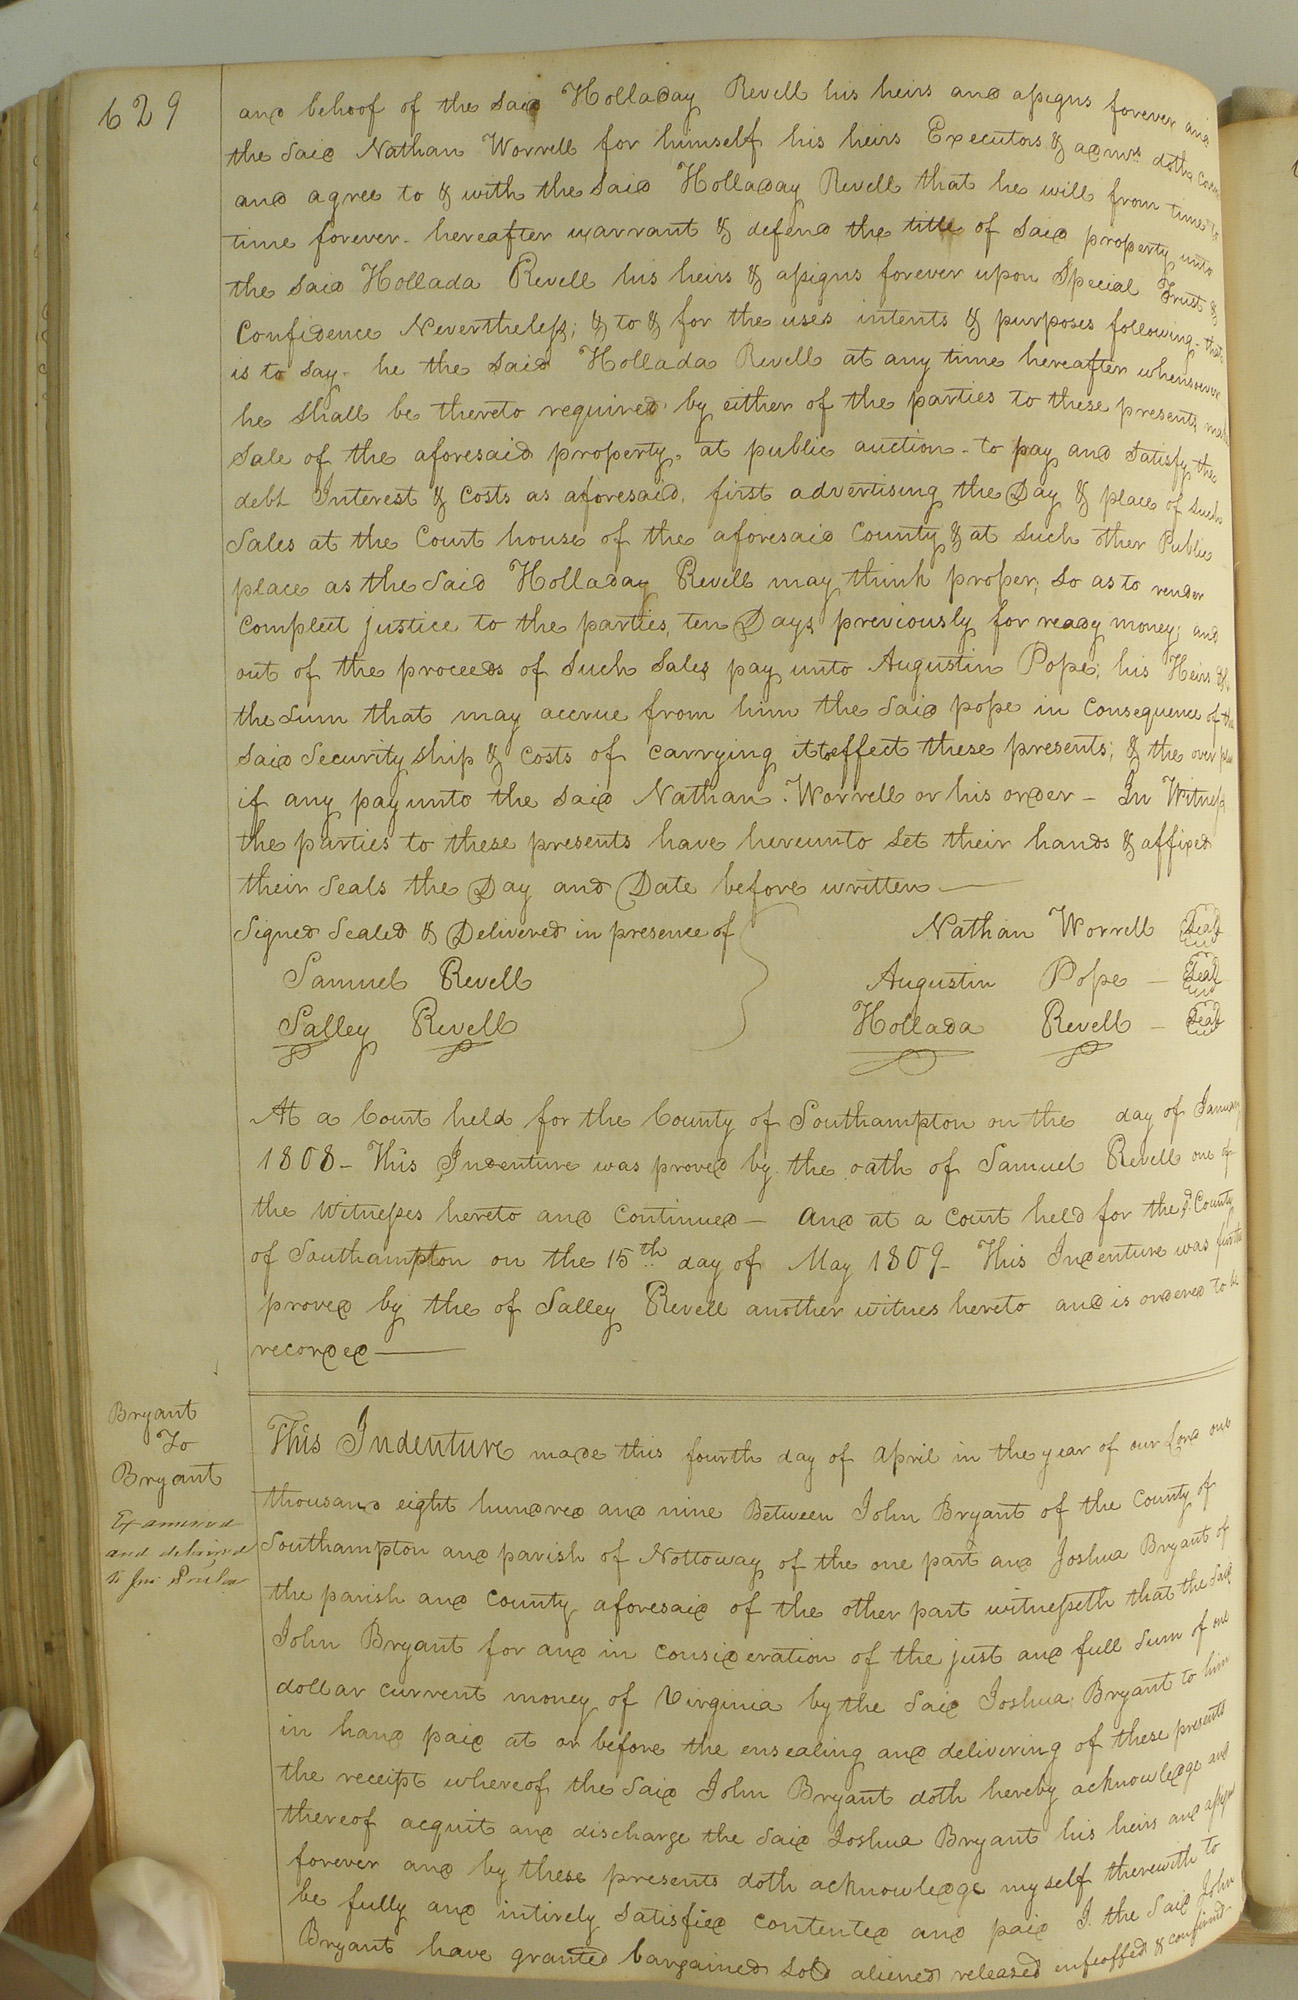 629
and behoof of the said Holladay Revell his heirs and assigns forever and
the said Nathan Worrell for himself his heirs Executors & admrs doth
and agree to & with the said Holladay Revell that he will from time to
time forever hereafter warrant & defend the title of said property unto
the said Hollada Revell his heirs & assigns forever upon Special Trust &
Confidence Nevertheless; & to & for the uses intents & purposes following - that
is to say - he the said Hollada Revell at any time hereafter whensoever
he shall be thereto required by either of the parties to these presents, make
sale of the aforesaid property, at public auction - to pay and satisfy the
debt Interest & costs as aforesaid, first advertising the Day & place of such
Sales at the Court house of the aforesaid County & at such other Public
place as the said Holladay Revell may think proper; so as to render
compleet justice to the parties, ten Days previously for ready money; and
out of the proceeds of such sales pay unto Augustin Pope; his Heirs
the sum that may accrue from him the said pope in Consequence of the
said Security ship & costs of carrying it to effect these presents; & the over plus
if any pay unto the said Nathan Worrell or his order - In Witness
the parties to these presents have hereunto set their hands & affixed
their seals the Day and Date before written
Signed Sealed & Delivered in presence of
Nathan Worrell Seal
Samuel Revell
Augustin Pope - Seal
Salley Revell
Hollada Revell - Seal
At a Court held for the County of Southampton on the day of January
1808 - This Indenture was proved by the oath of Samuel Revell one of
the Witnesses hereto and Continued - And at a Court held for the sd. County
of Southampton on the 15th day of May 1809 - This Indenture was further
proved by the of Salley Revell another witnes hereto and is ordered to be
recorded
Bryant
To
Bryant
Examined
and delivered
to
This Indenture made this fourth day of April in the year of our Lord one
thousand eight hundred and nine Between John Bryant of the County of
Southampton and parish of Nottoway of the one part and Joshua Bryant of
the parish and County aforesaid of the other part witnesseth that the said
John Bryant for and in consideration of the just and full sum of one
dollar current money of Virginia by the said Joshua Bryant to him
in hand paid at or before the ensealing and delivering of these presents
the receipt whereof the said John Bryant doth hereby acknowledge and
thereof acquit and discharge the said Joshua Bryant his heirs and assigns
forever and by these presents doth acknowledge myself therewith to
be fully and intirely satisfied contented and paid I the said John
Bryant have granted bargained sold aliened released infeoffed & confirmed